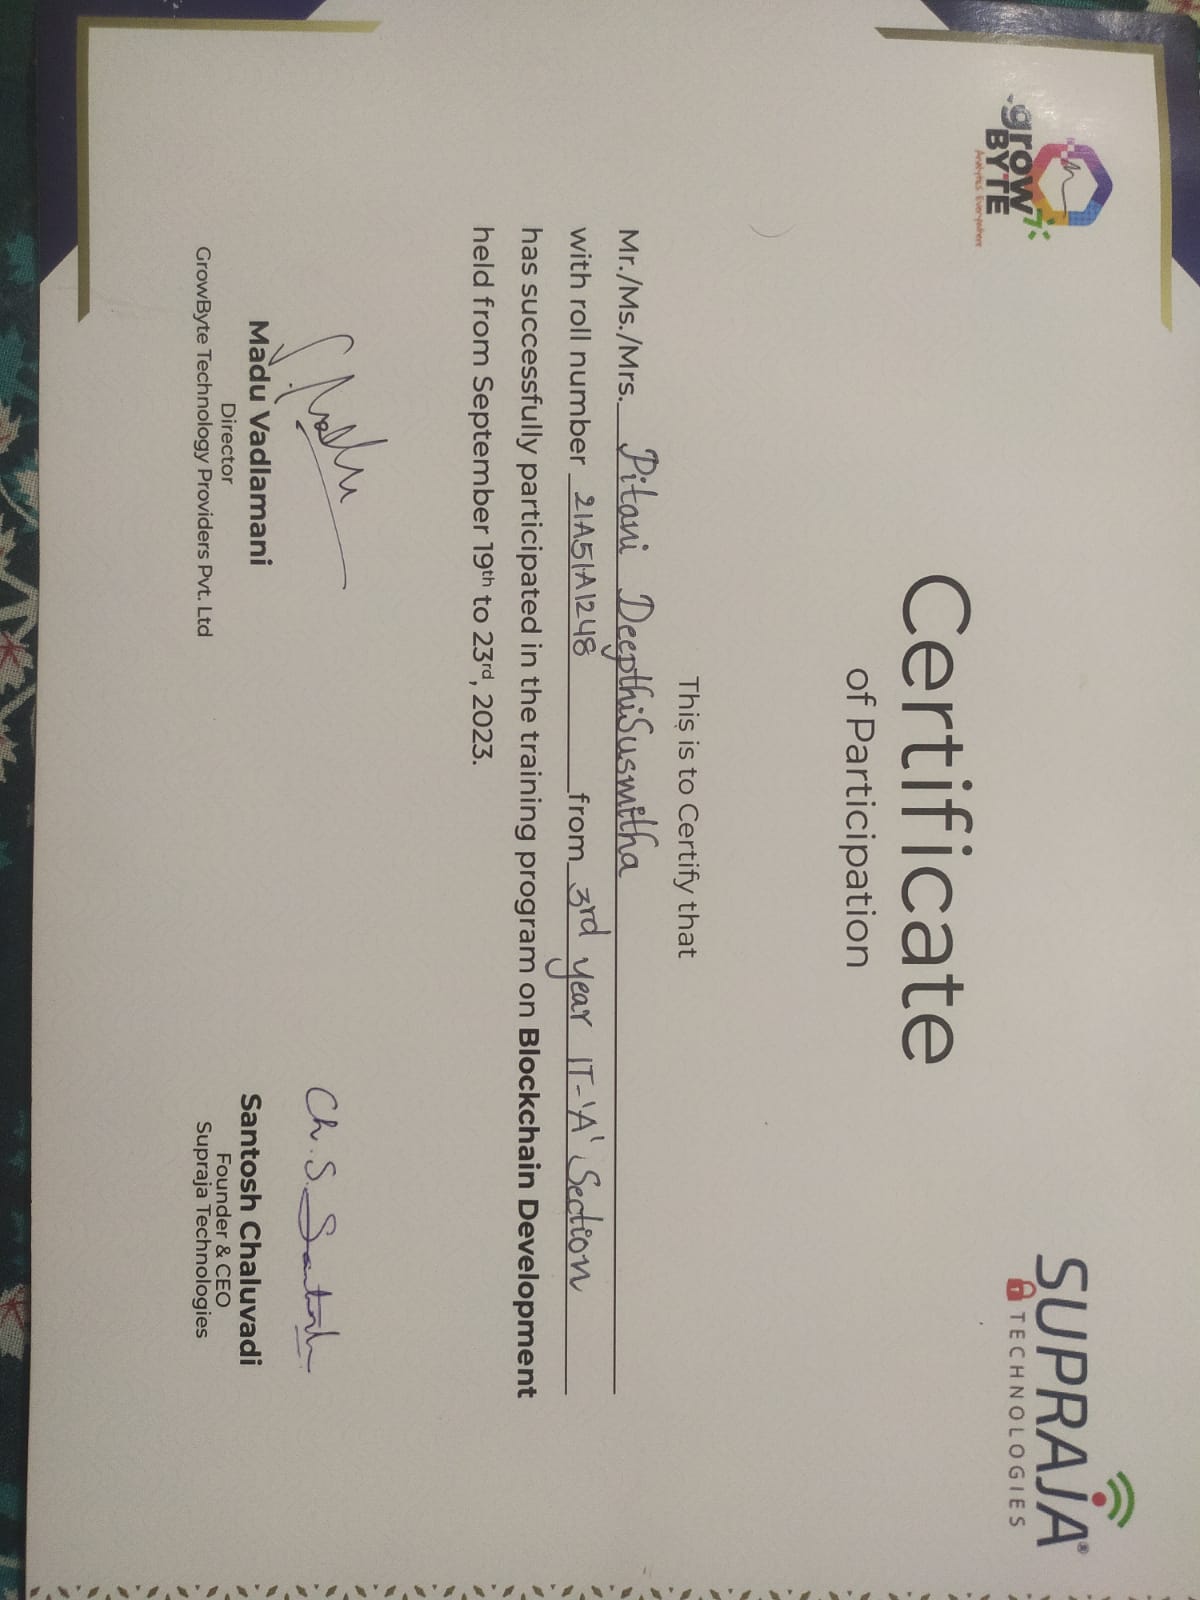 grow
BYTE
Analytics Everywhere
SUPRAJA®
TECHNOLOGIES
Certificate
of Participation
This is to Certify that
Mr./Ms./Mrs. Pitani DeepthiSusmitha
with roll number 21A51A1248 from 3rd year IT-'A' Section
has successfully participated in the training program on Blockchain Development
held from September 19th to 23rd, 2023.
Ch. S. Santosh
Madu Vadlamani
Director
GrowByte Technology Providers Pvt. Ltd
Santosh Chaluvadi
Founder & CEO
Supraja Technologies